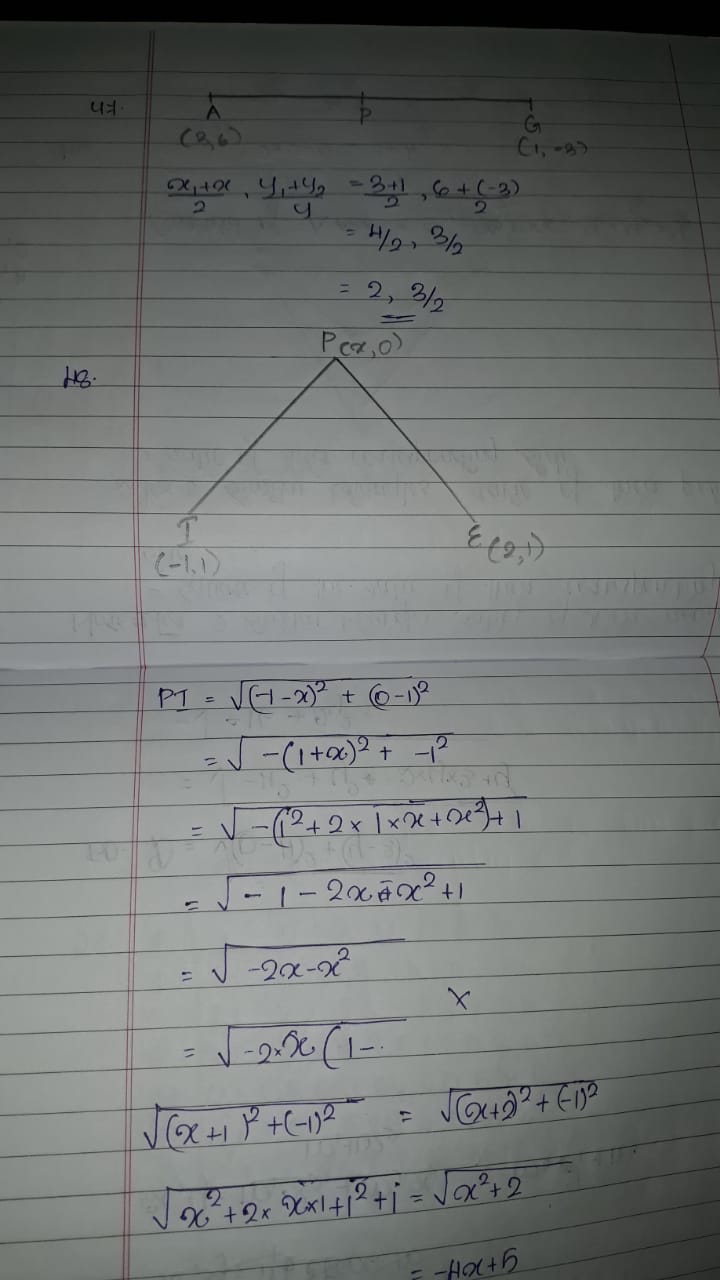 47.
A P G
(3,6) (1,-3)
x₁+x/2, y₁+y₂/y = 3+1/2, 6+(-3)/2
= 4/2, 3/2
= 2, 3/2
P(x,0)
48.
I E (2,1)
(-1,1)
PI = √(-1-x)² + (0-1)²
= √-(1+x)² + -1²
= √-(1²+2×1×x+x²)+1
= √-1-2x-x²+1
= √-2x-x²
×
= √-2×x(1-.
√(x+1)²+(-1)² = √(x+2)²+(-1)²
√x²+2×x×1+1²+1 = √x²+2
= -4x+5